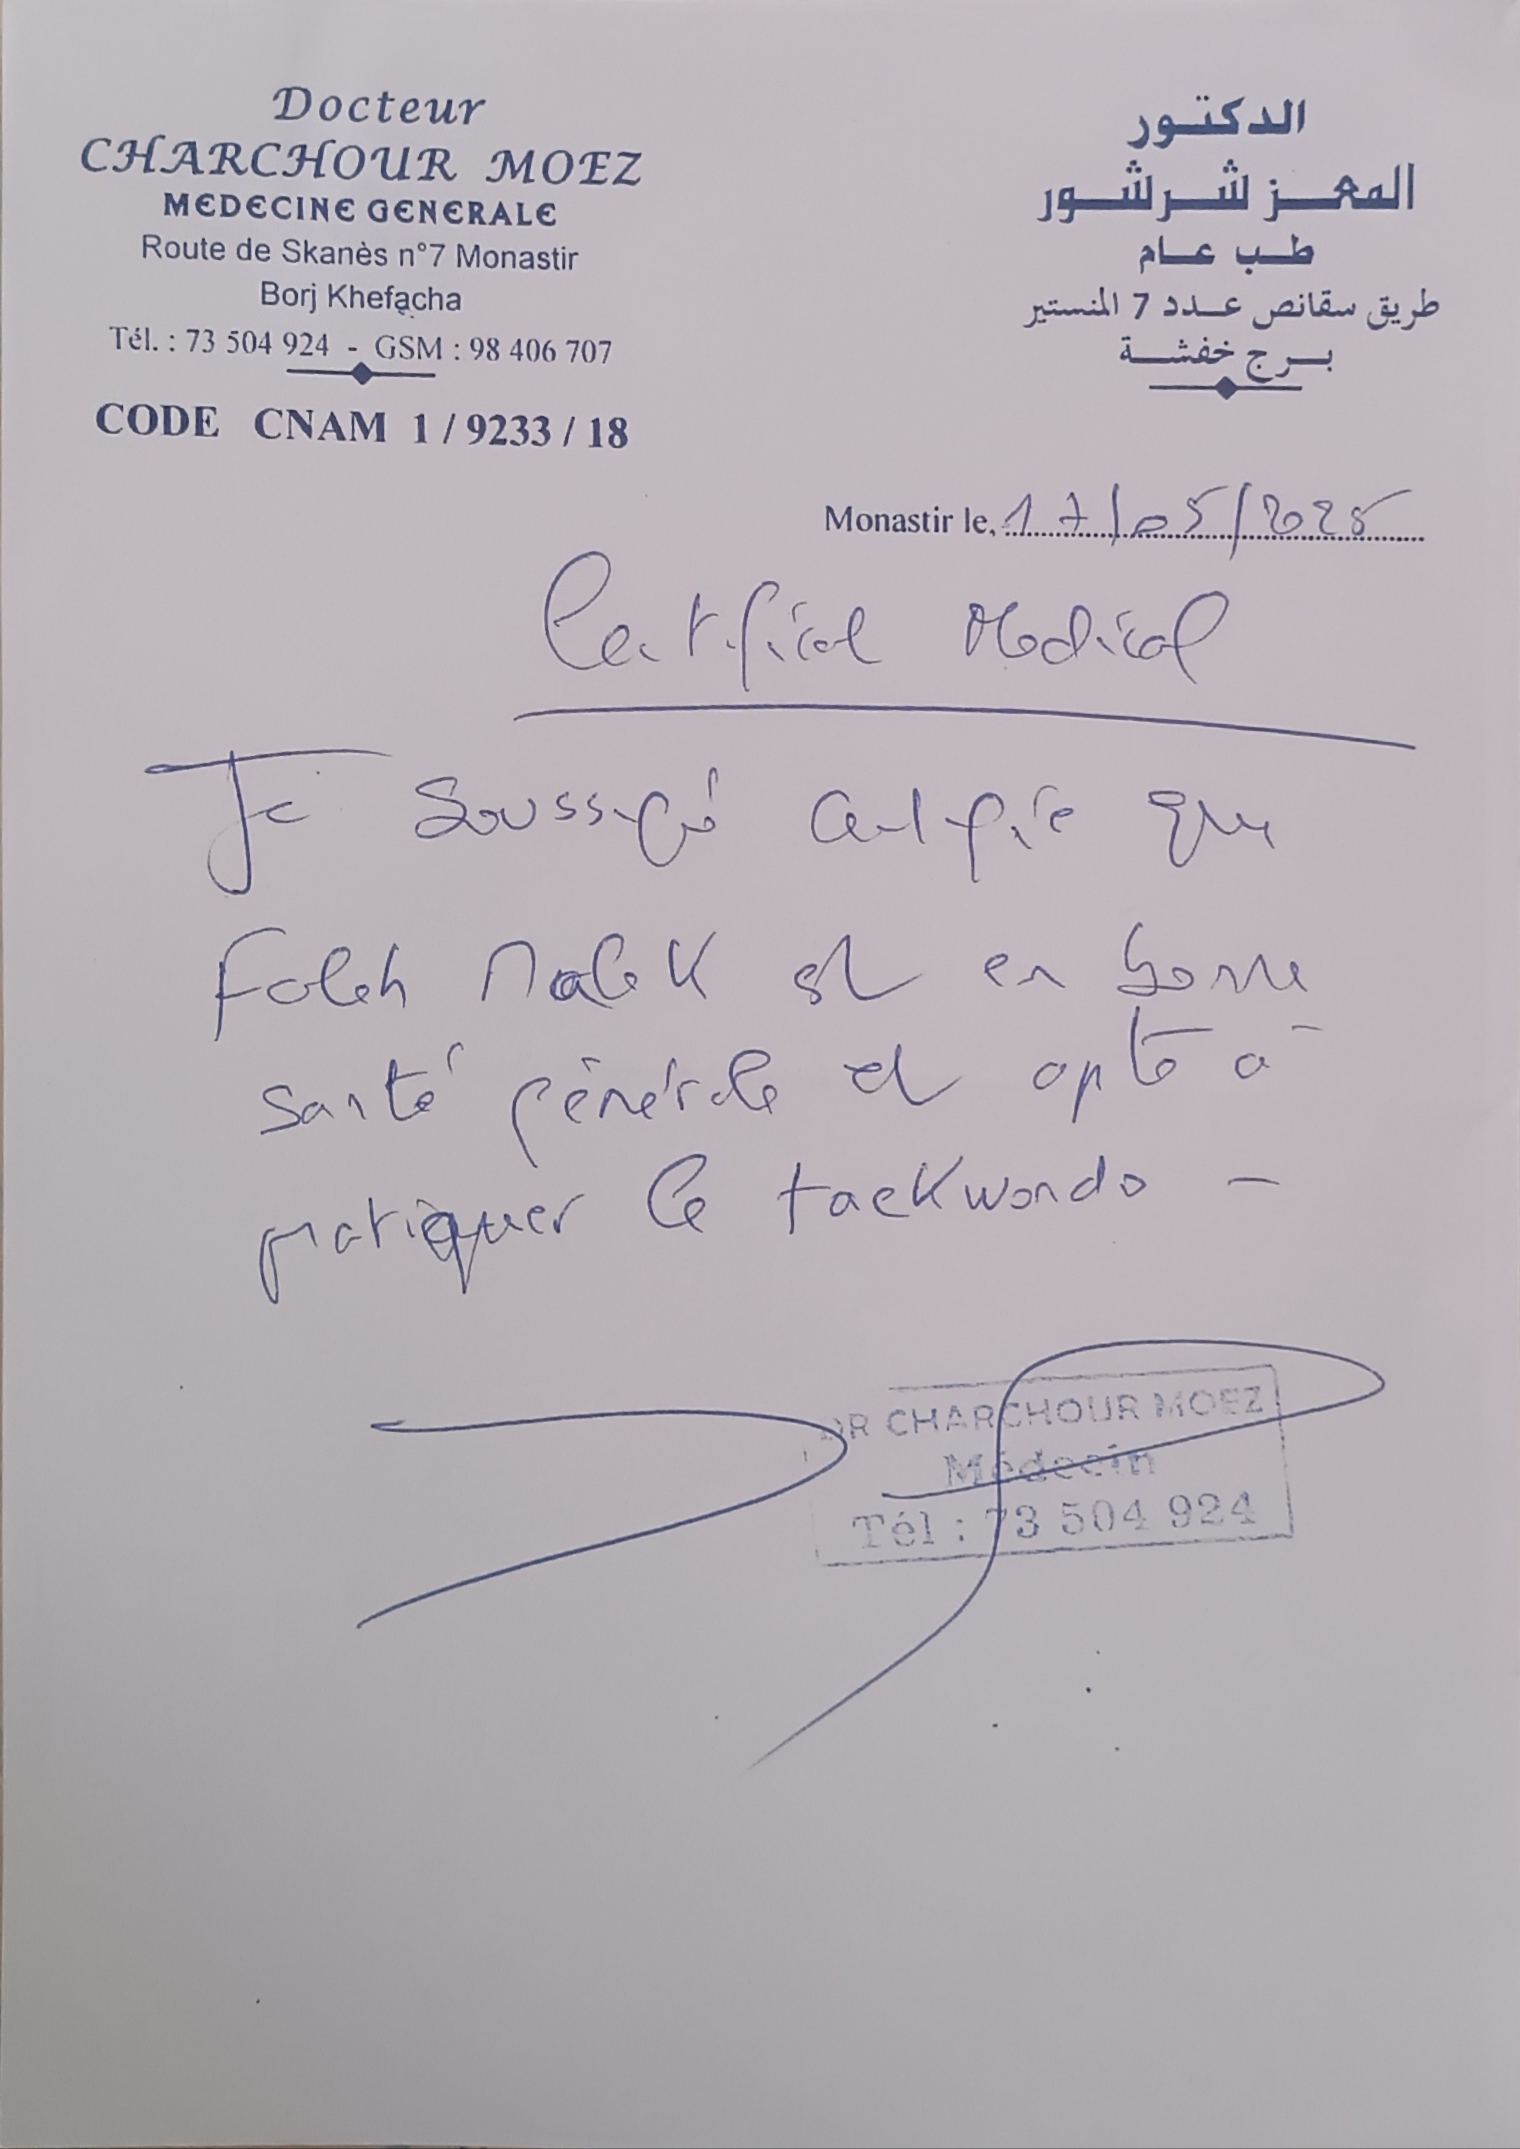 Docteur
CHARCHOUR MOEZ
MEDECINE GENERALE
Route de Skanès n°7 Monastir
Borj Khefacha
Tél. : 73 504 924 - GSM : 98 406 707
CODE CNAM 1 / 9233 / 18
الدكتور
المعز شرشور
طب عام
طريق سقانص عدد 7 المنستير
برج خفشة
Monastir le, 17/05/2025
Certificat Medical
Je soussigné certifie que
Faleh Malek est en bonne
santé générale et apte à
pratiquer le taekwondo -
DR CHARCHOUR MOEZ
Médecin
Tél : 73 504 924